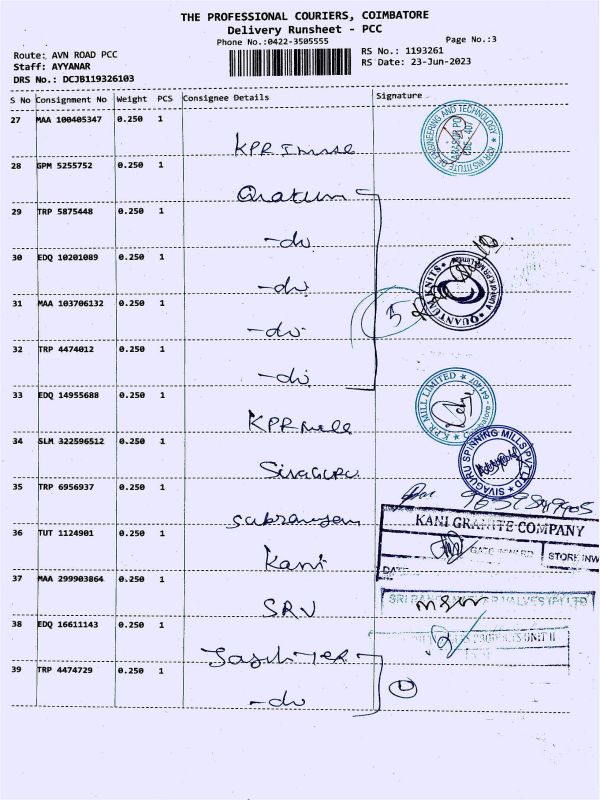 THE PROFESSIONAL COURIERS, COIMBATORE
Delivery Runsheet - PCC
Phone No.:0422-3505555
Page No.:3
Route: AVN ROAD PCC
RS No.: 1193261
Staff: AYYANAR
RS Date: 23-Jun-2023
DRS No.: DCJB119326103
S No Consignment No Weight PCS Consignee Details Signature
27 MAA 100405347 0.250 1
KPR
KPR INSTITUTE OF ENGINEERING AND TECHNOLOGY
28 GPM 5255752 0.250 1
Quantum
29 TRP 5875448 0.250 1
-do
30 EDQ 10201089 0.250 1
-do
QUANTUM KNITS
31 MAA 103706132 0.250 1
-do
5
32 TRP 4474012 0.250 1
-do
33 EDQ 14955688 0.250 1
KPR mill
K.P.R. MILL LIMITED
641407
34 SLM 322596512 0.250 1
Sivaguru
SIVAGURU SPINNING MILLS PVT LTD
35 TRP 6956937 0.250 1
36 TUT 1124901 0.250 1
Kani
KANI GRANITE COMPANY
GATE INWARD
STORE INW
DATE
37 MAA 299903864 0.250 1
SRV
VALVES (P) LTD
38 EDQ 16611143 0.250 1
UNIT II
39 TRP 4474729 0.250 1
-do